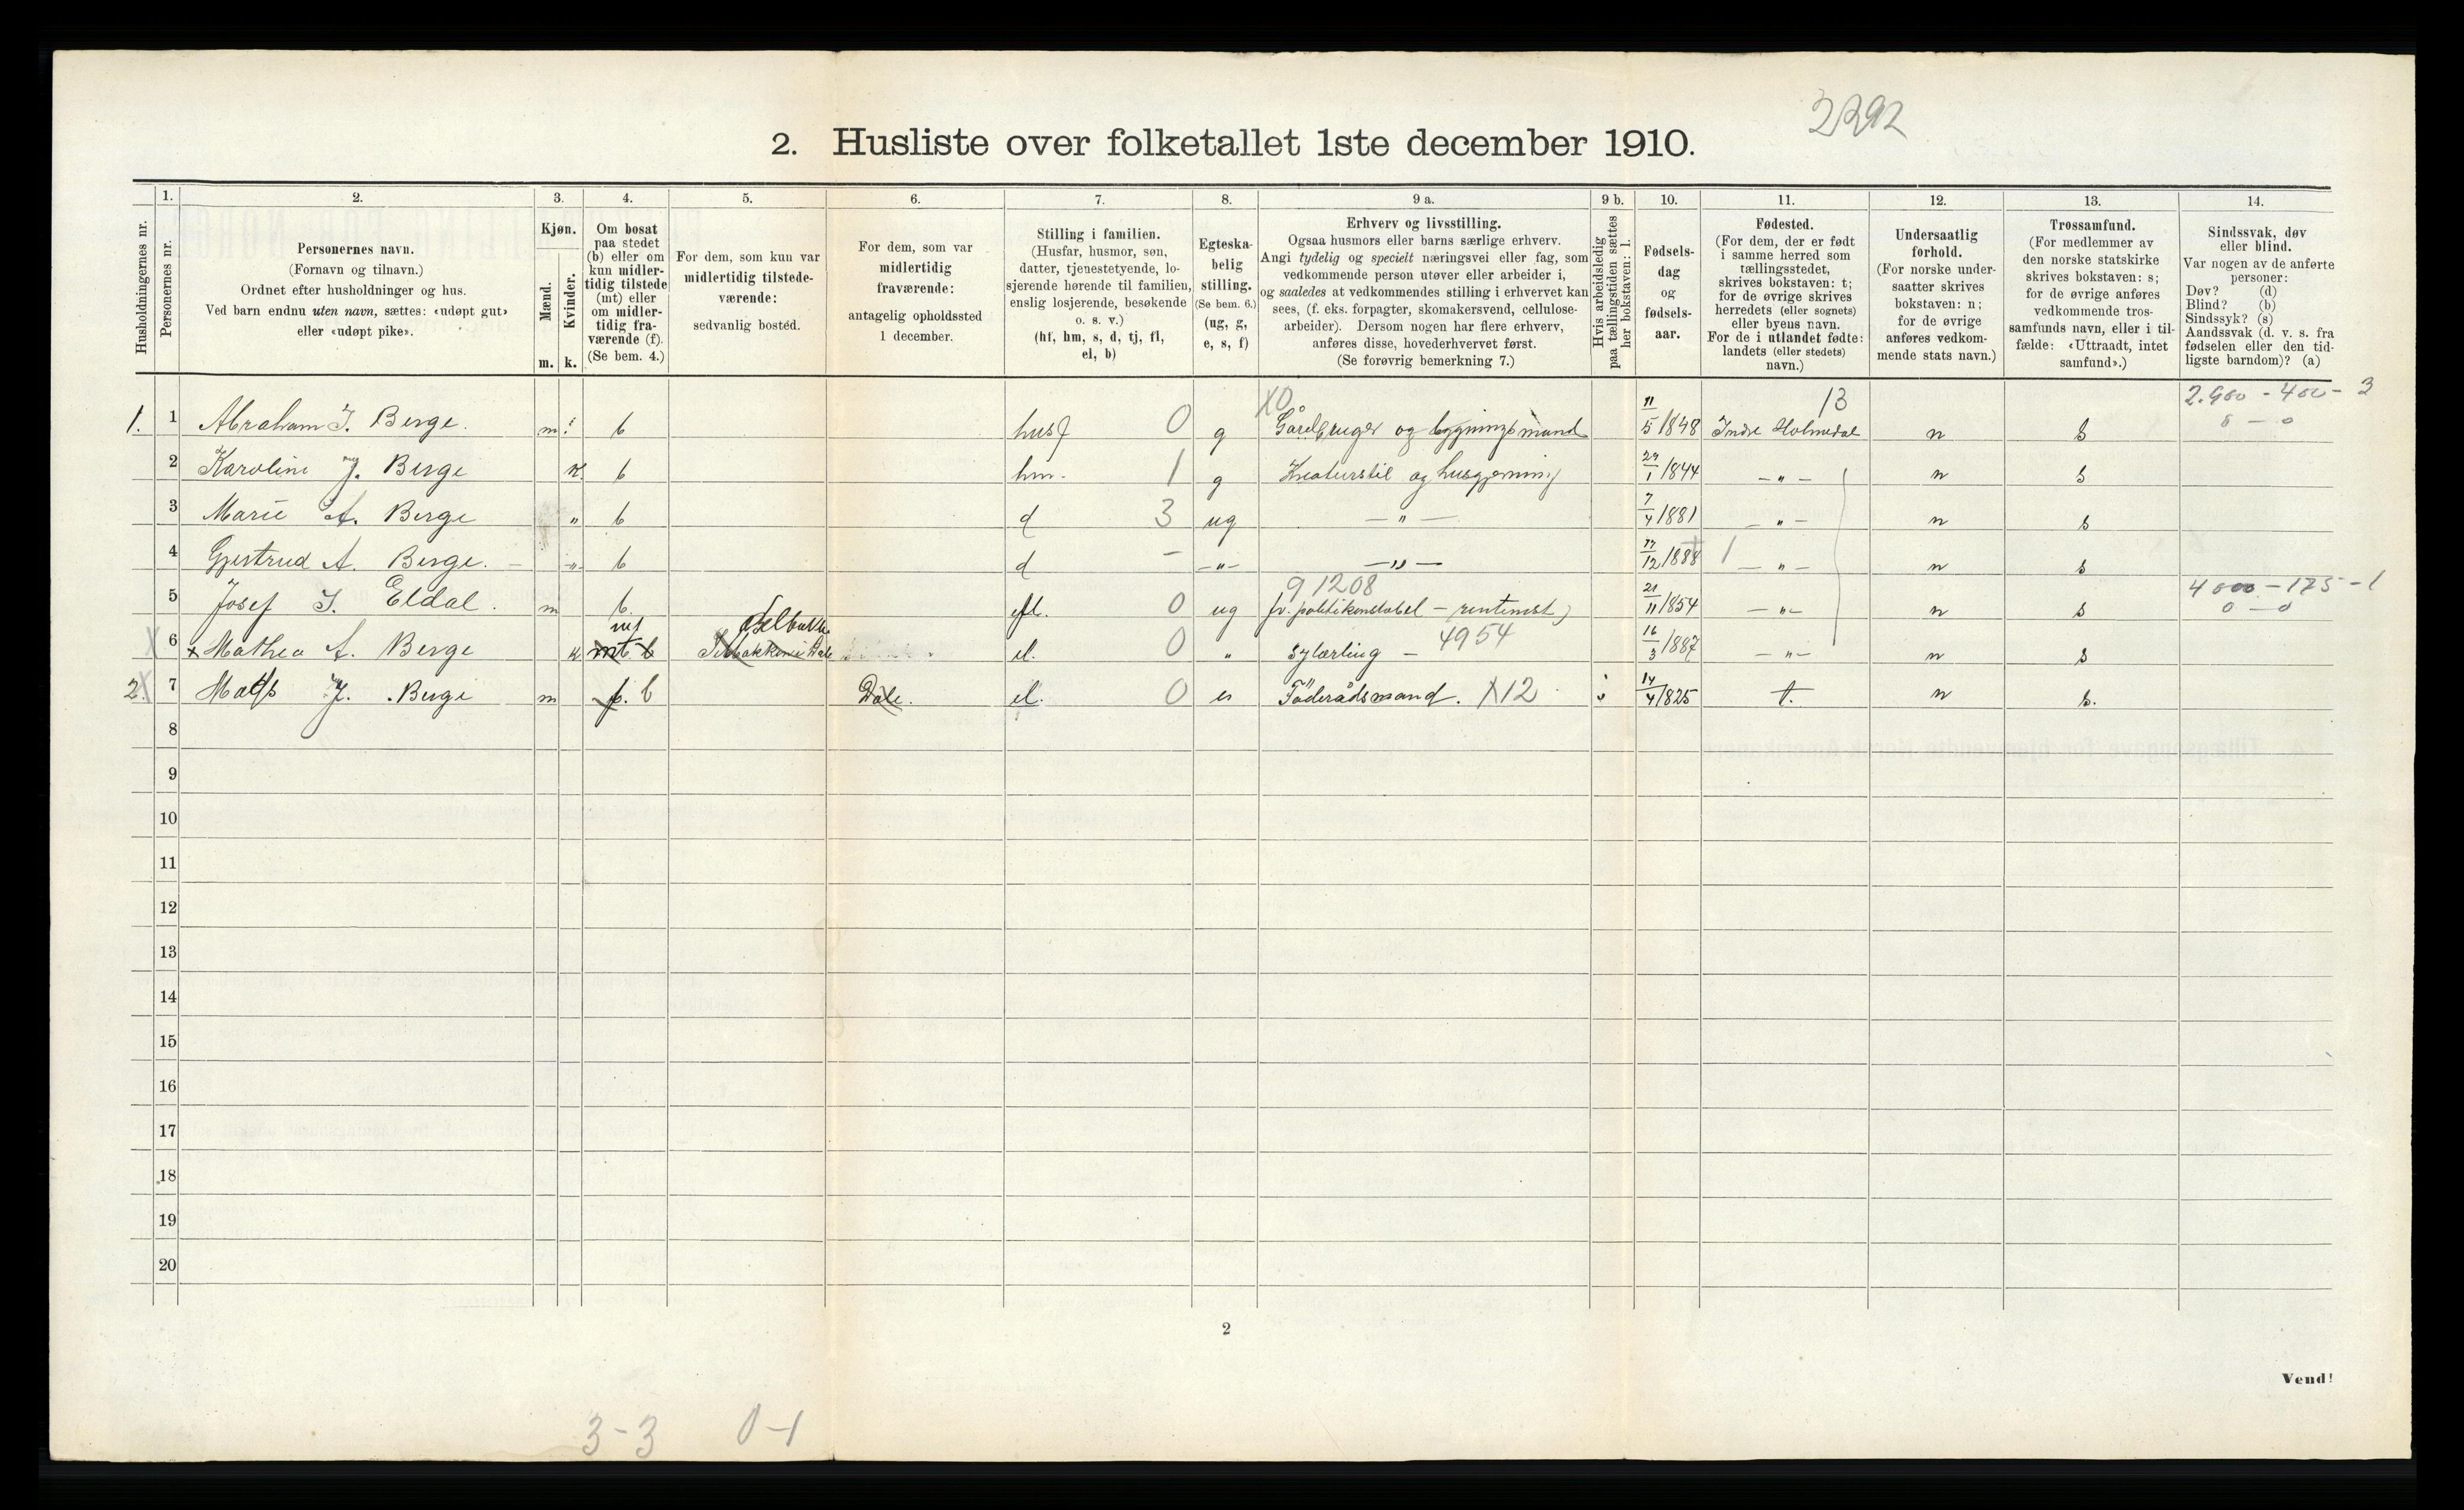 2292
2. Husliste over folketallet 1ste december 1910.
Husholdningernes nr.
1.
Personernes nr.
2.
Personernes navn.
(Fornavn og tilnavn.)
Ordnet efter husholdninger og hus.
Ved barn endnu uten navn, sættes: «udøpt gut»
eller «udøpt pike».
3.
Kjøn.
Mænd.
Kvinder.
m. k.
4.
Om bosat
paa stedet
(b) eller om
kun midler-
tidig tilstede
(mt) eller
om midler-
tidig fra-
værende (f).
(Se bem. 4.)
5.
For dem, som kun var
midlertidig tilstede-
værende:
sedvanlig bosted.
6.
For dem, som var
midlertidig
fraværende:
antagelig opholdssted
1 december.
7.
Stilling i familien.
(Husfar, husmor, søn,
datter, tjenestetyende, lo-
sjerende hørende til familien,
enslig losjerende, besøkende
o. s. v.)
(hf, hm, s, d, tj, fl,
el, b)
8.
Egteska-
belig
stilling.
(Se bem. 6.)
(ug, g,
e, s, f)
9 a.
Erhverv og livsstilling.
Ogsaa husmors eller barns særlige erhverv.
Angi tydelig og specielt næringsvei eller fag, som
vedkommende person utøver eller arbeider i,
og saaledes at vedkommendes stilling i erhvervet kan
sees, (f. eks. forpagter, skomakersvend, cellulose-
arbeider). Dersom nogen har flere erhverv,
anføres disse, hovederhvervet først.
(Se forøvrig bemerkning 7.)
9 b.
Hvis arbeidsledig
paa tællingstiden sættes
her bokstaven: l.
10.
Fødsels-
dag
og
fødsels-
aar.
11.
Fødested.
(For dem, der er født
i samme herred som
tællingsstedet,
skrives bokstaven: t;
for de øvrige skrives
herredets (eller sognets)
eller byens navn.
For de i utlandet fødte:
landets (eller stedets)
navn.)
12.
Undersaatlig
forhold.
(For norske under-
saatter skrives
bokstaven: n;
for de øvrige
anføres vedkom-
mende stats navn.)
13.
Trossamfund.
(For medlemmer av
den norske statskirke
skrives bokstaven: s;
for de øvrige anføres
vedkommende tros-
samfunds navn, eller i til-
fælde: «Uttraadt, intet
samfund».)
14.
Sindssvak, døv
eller blind.
Var nogen av de anførte
personer:
Døv? (d)
Blind? (b)
Sindssyk? (s)
Aandssvak (d. v. s. fra
fødselen eller den tid-
ligste barndom)? (a)
X0 13 2.900 - 400 - 3
1. 1 Abraham J. Berge. m b husf 0 g Gårdbruger og bygningsmand 11/5 1848 Indre Holmedal n s 0 - 0
2 Karoline J. Berge k. b hm. 1 g Kreaturstel og husgjerning 29/1 1844 - " - n s
3 Marie A. Berge " b d 3 ug - " - 7/4 1881 - " - n s
4 Gjertrud A. Berge. - " - b d - - " - - " - 12 1888 1 - " - n s
91208 4000 - 175 - 1
5 Josef J. Eldal. m b. fl. 0 ug fv. politikonstabel - rentenist 21/11 1854 - " - n s 0 - 0
X 6 x Mathea A. Berge k mt b Dale el. 0 " sylærling - 4954 16/3 1887 - " - n s
2. X 7 Mads J. Berge m f. b Dale. el. 0 e Føderådsmand. X12 14/4 1825 t. n s.
8
9
10
11
12
13
14
15
16
17
18
19
20
2
Vend!
3-3 0-1